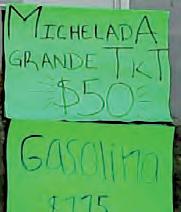 MICHELADA
GRANDE TKT
$50
Gasolina
$775